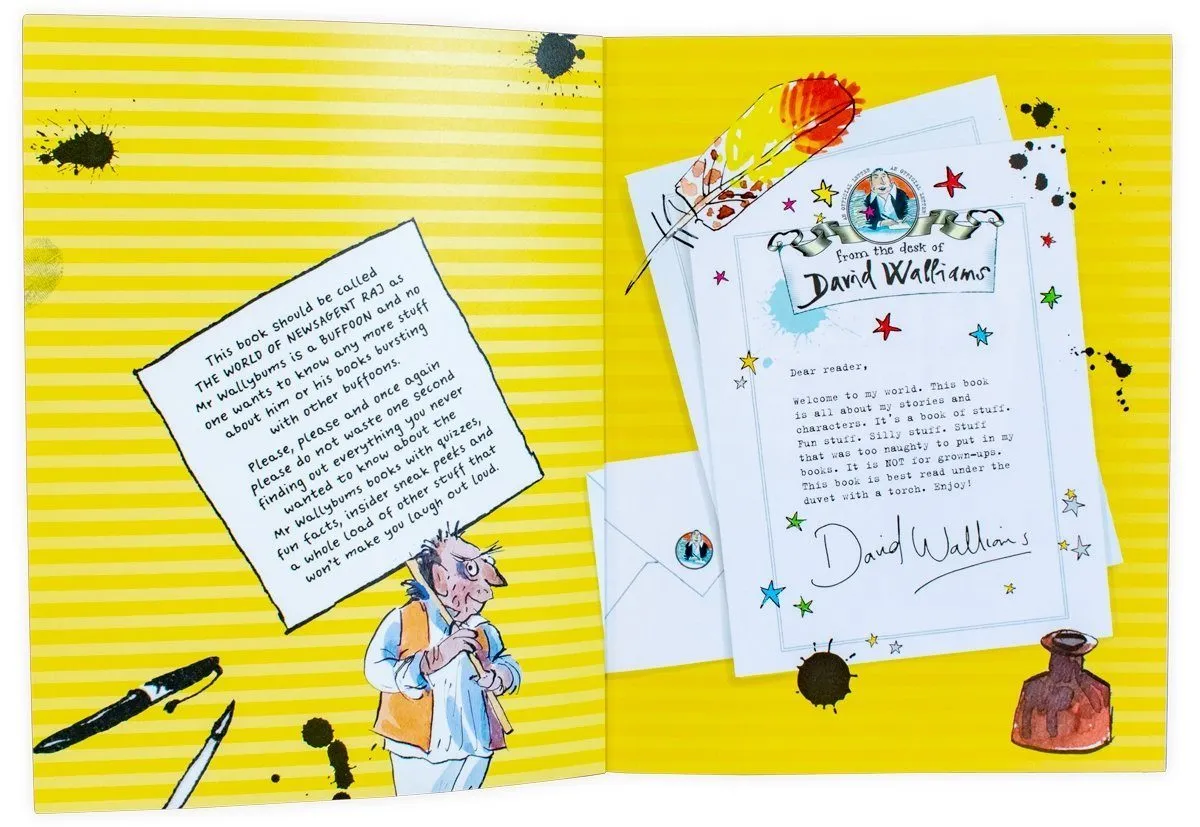 This book should be called
THE WORLD OF NEWSAGENT RAJ as
Mr Wallybums is a BUFFOON and no
one wants to know any more stuff
about him or his books bursting
with other buffoons.
Please, please and once again
please do not waste one second
finding out everything you never
wanted to know about the
Mr Wallybums books with quizzes,
fun facts, insider sneak peeks and
a whole load of other stuff that
won't make you laugh out loud.
AN OFFICIAL LETTER AN OFFICIAL LETTER
from the desk of
David Walliams
Dear reader,
Welcome to my world. This book
is all about my stories and
characters. It's a book of stuff.
Fun stuff. Silly stuff. Stuff
that was too naughty to put in my
books. It is NOT for grown-ups.
This book is best read under the
duvet with a torch. Enjoy!
David Walliams